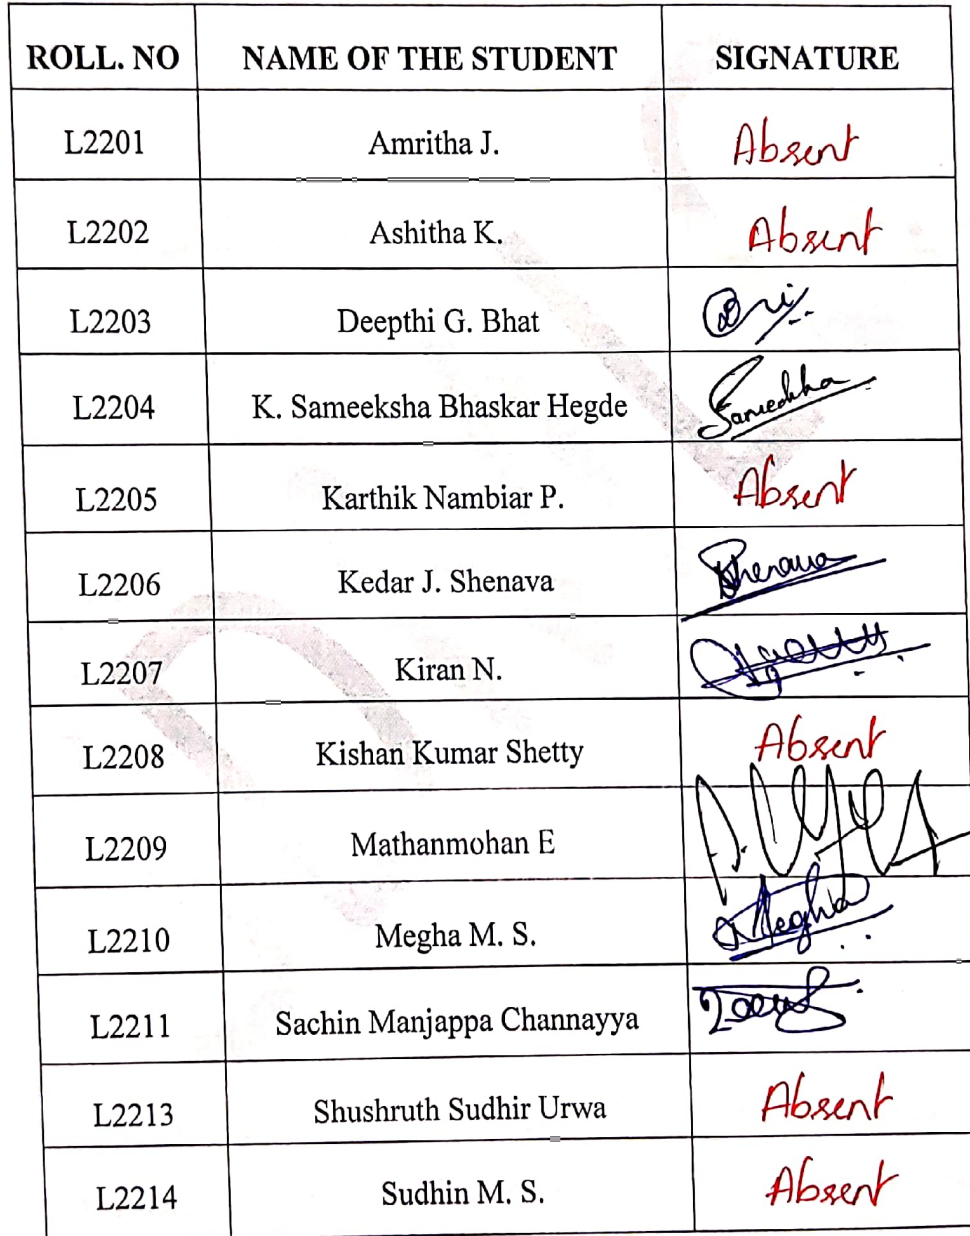 ROLL. NO NAME OF THE STUDENT SIGNATURE
L2201 Amritha J. Absent
L2202 Ashitha K. Absent
L2203 Deepthi G. Bhat
L2204 K. Sameeksha Bhaskar Hegde
L2205 Karthik Nambiar P. Absent
L2206 Kedar J. Shenava Shenava
L2207 Kiran N.
L2208 Kishan Kumar Shetty Absent
L2209 Mathanmohan E
L2210 Megha M. S. Megha
L2211 Sachin Manjappa Channayya
L2213 Shushruth Sudhir Urwa Absent
L2214 Sudhin M. S. Absent